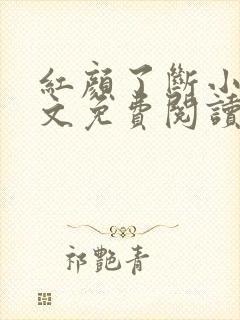 紅顏了斷小
文免費閱讀
祁艷青